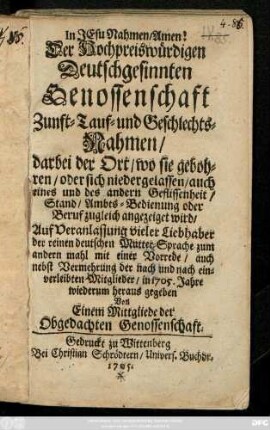 4-86.
In JEsu Nahmen/Amen!
Der Hochpreiswürdigen
Deutschgesinnten
Genossenschaft
Zunft-Tauf-und Geschlechts-
Nahmen/
darbei der Ort/ wo sie geboh-
ren/ oder sich niedergelassen/ auch
eines und des andern Geflissenheit/
Stand/ Ambts-Bedienung oder
Beruf zugleich angezeiget wird/
Auf Veranlassung vieler Liebhaber
der reinen deutschen Mutter-Sprache zum
andern mahl mit einer Vorrede/ auch
nebst Vermehrung der nach und nach ein-
verleibten Mitglieder/ in 1705. Jahre
wiederum heraus gegeben
Von
Einem Mittgliede der
Obgedachten Genossenschaft.
Gedruckt zu Wittenberg
Bei Christian Schrödtern/ Univers. Buchdr.
1705.